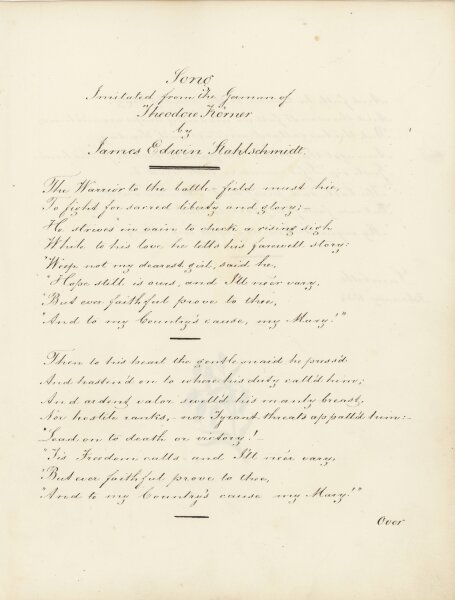 Song
Imitated from the German of
Theodore Körner
by
James Edwin Stahlschmidt.
The Warrior to the battle-field must hie,
To fight for sacred liberty and glory;—
He strives in vain to check a rising sigh
While to his love he tells his farewell story:
"Weep not my dearest girl, said he,
"Hope still is ours, and I'll ne'er vary,
"But ever faithful prove to thee,
"And to my Country's cause, my Mary!"
Then to his heart the gentle maid he press'd
And hasten'd on to where his duty call'd him;
And ardent valor swell'd his manly breast,
Nor hostile ranks, nor Tyrant threats appall'd him:—
"Lead on to death or victory!—
"Tis Freedom calls—and I'll ne'er vary,
"But ever faithful prove to thee,
"And to my Country's cause my Mary!"
Over